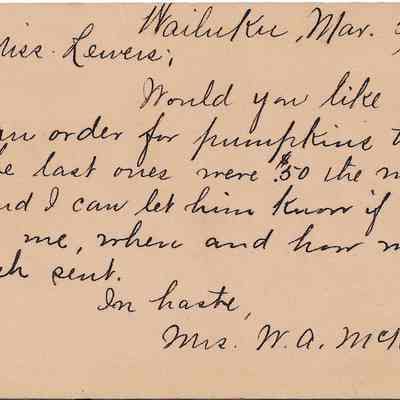 Wailuku, Mar.
iss. Lewers;
Would you like
an order for pumpkins t
e last ones were $.50 the
nd I can let him know if
me, when and how m
ch sent.
In haste,
Mrs. W. A. McK